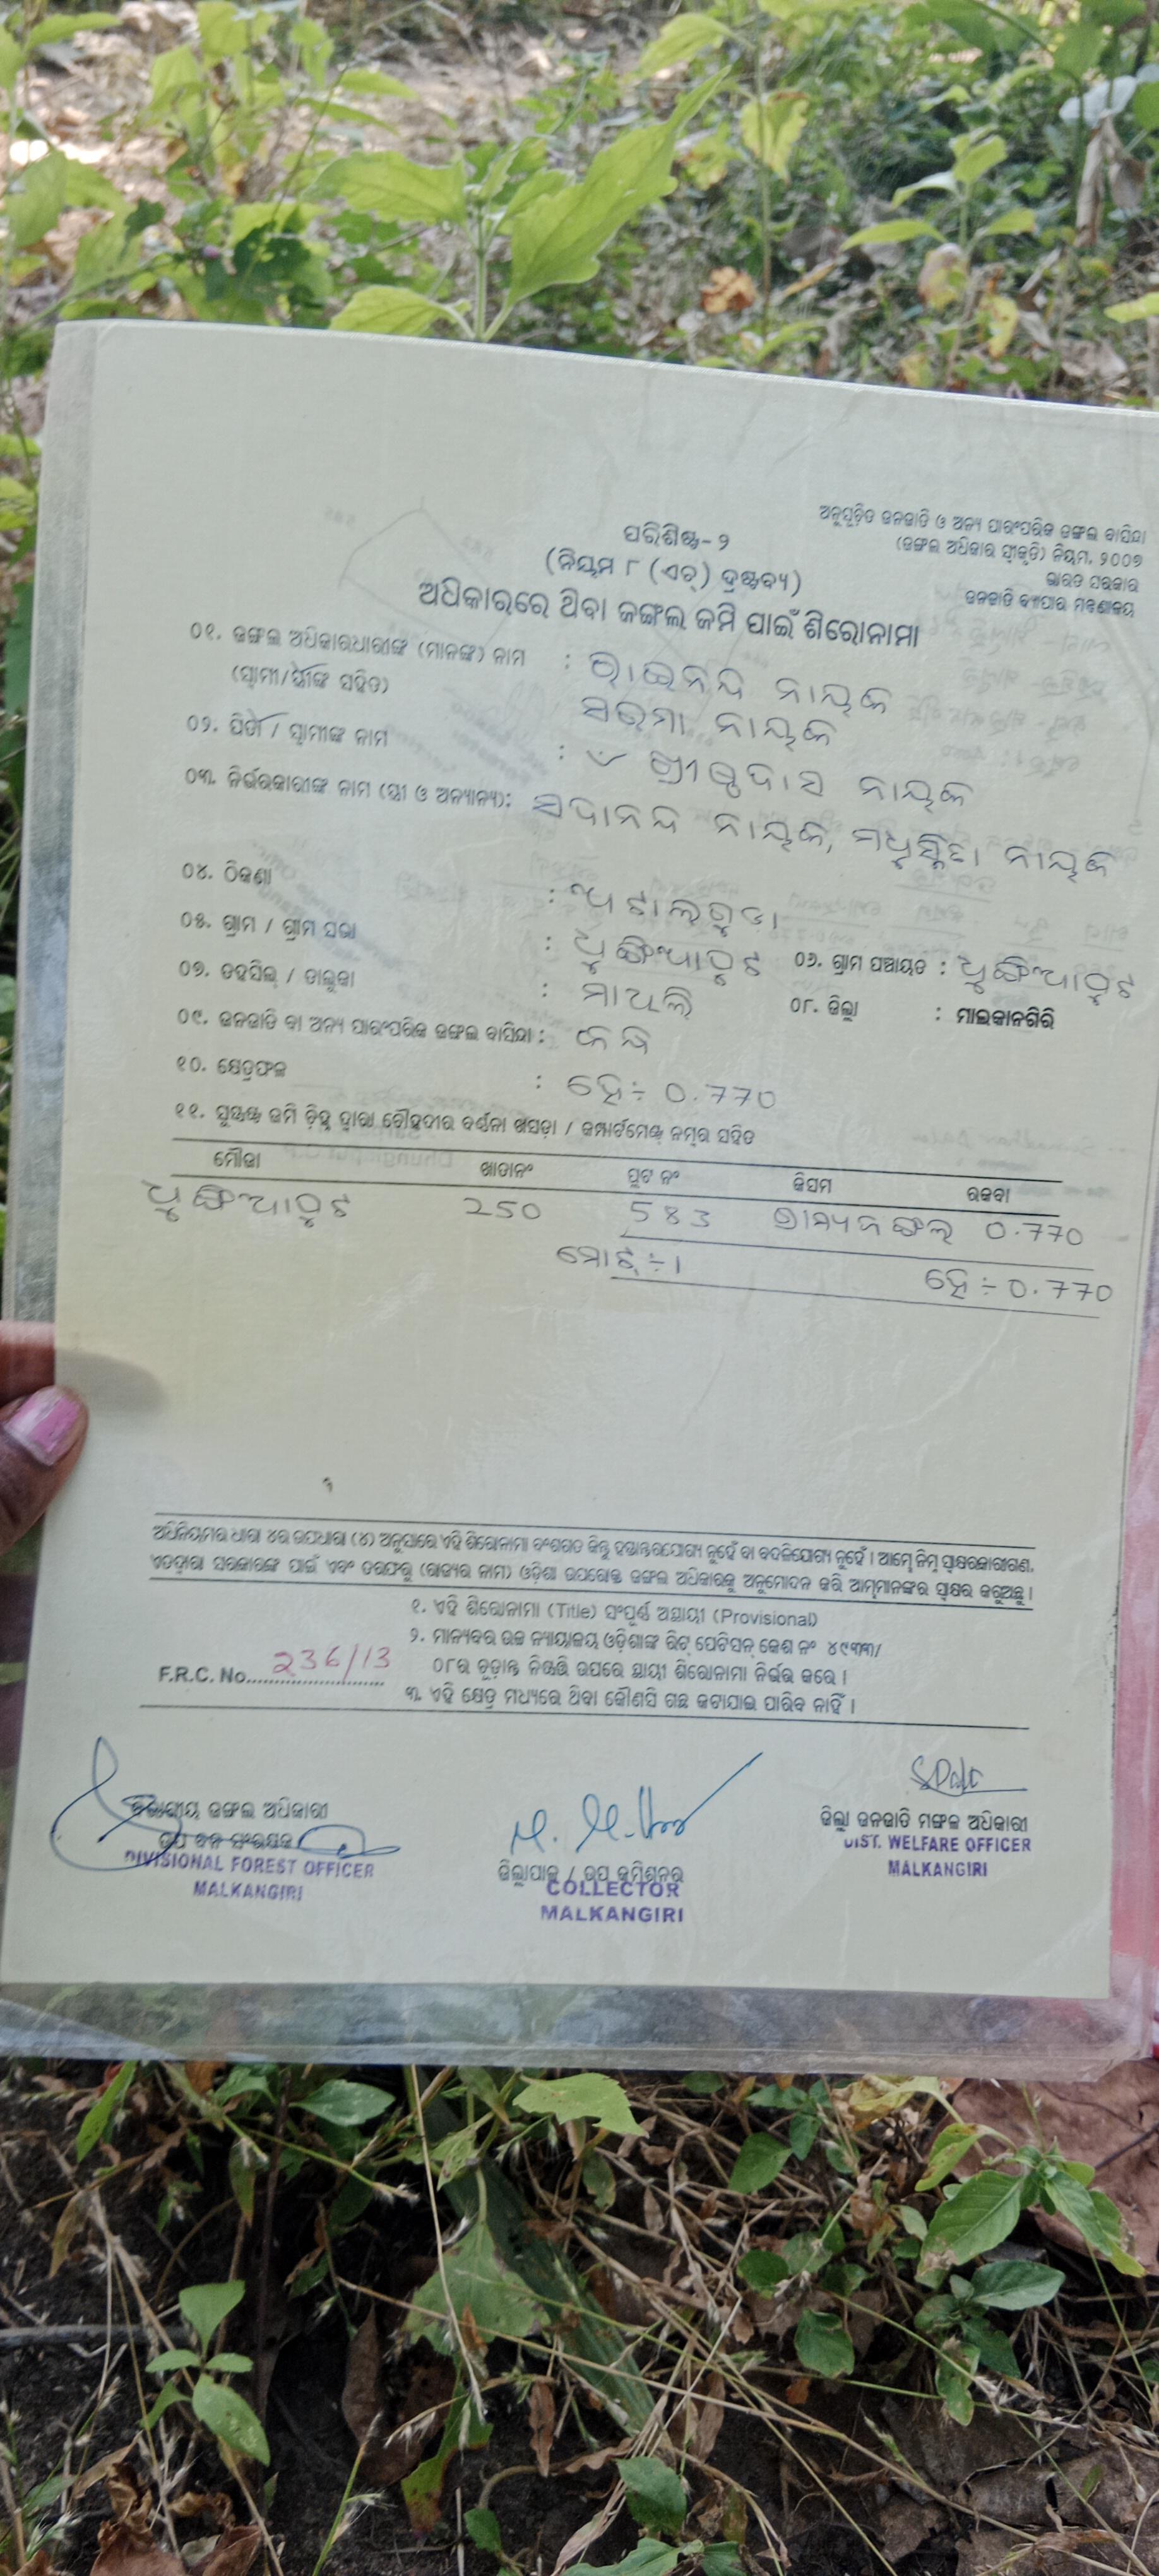 ଅନୁସୂଚିତ ଜନଜାତି ଓ ଅନ୍ୟ ପାରଂପରିକ ଜଙ୍ଗଲ ବାସିନ୍ଦା
(ଜଙ୍ଗଲ ଅଧିକାର ସ୍ୱୀକୃତି) ନିୟମ, ୨୦୦୭
ଭାରତ ସରକାର
ଜନଜାତି ବ୍ୟାପାର ମନ୍ତ୍ରଣାଳୟ
ପରିଶିଷ୍ଟ-୨
(ନିୟମ ୮ (ଏଚ୍) ଦ୍ରଷ୍ଟବ୍ୟ)
ଅଧିକାରରେ ଥିବା ଜଙ୍ଗଲ ଜମି ପାଇଁ ଶିରୋନାମା
୦୧. ଜଙ୍ଗଲ ଅଧିକାରଧାରୀଙ୍କ (ମାନଙ୍କ) ନାମ : ରାଇନନ୍ଦ ନାୟକ
(ସ୍ୱାମୀ/ସ୍ତ୍ରୀଙ୍କ ସହିତ) ସରମା ନାୟକ
୦୨. ପିତା / ସ୍ୱାମୀଙ୍କ ନାମ : ନାୟକ
୦୩. ନିର୍ଭରକାରୀଙ୍କ ନାମ (ସ୍ତ୍ରୀ ଓ ଅନ୍ୟାନ୍ୟ): ସଦାନନ୍ଦ ନାୟକ, ମଧୁସ୍ମିତା ନାୟକ
୦୪. ଠିକଣା :
୦୫. ଗ୍ରାମ / ଗ୍ରାମ ସଭା : ଧୁଙ୍ଗିଆପୁଟ ୦୬. ଗ୍ରାମ ପଞ୍ଚାୟତ : ଧୁଙ୍ଗିଆପୁଟ
୦୭. ତହସିଲ୍ / ତାଲୁକା : ମାଥିଲି ୦୮. ଜିଲ୍ଲା : ମାଲକାନଗିରି
୦୯. ଜନଜାତି ବା ଅନ୍ୟ ପାରଂପରିକ ଜଙ୍ଗଲ ବାସିନ୍ଦା :
୧୦. କ୍ଷେତ୍ରଫଳ : ହେ÷ 0.770
୧୧. ସୁସ୍ପଷ୍ଟ ଜମି ଚିହ୍ନ ଦ୍ୱାରା ଚୌହଦୀର ବର୍ଣ୍ଣନା ଖସଡ଼ା / କମ୍ପାର୍ଟମେଣ୍ଟ ନମ୍ବର ସହିତ
ମୌଜା ଖାତାନଂ ପ୍ଲଟ ନଂ କିସମ ରକବା
ଧୁଙ୍ଗିଆପୁଟ 250 583 ଗ୍ରାମ୍ୟଜଙ୍ଗଲ 0.770
ମୋଟ୍÷1 ହେ÷0.770
ଅଧିନିୟମର ଧାରା ୪ର ଉପଧାରା (୪) ଅନୁସାରେ ଏହି ଶିରୋନାମା ବଂଶଗତ କିନ୍ତୁ ହସ୍ତାନ୍ତରଯୋଗ୍ୟ ନୁହେଁ ବା ବଦଳିଯୋଗ୍ୟ ନୁହେଁ । ଆମ୍ଭେ ନିମ୍ନ ସ୍ୱାକ୍ଷରକାରୀଗଣ,
ଏତଦ୍ୱାରା ସରକାରଙ୍କ ପାଇଁ ଏବଂ ତରଫରୁ (ରାଜ୍ୟର ନାମ) ଓଡ଼ିଶା ଉପରୋକ୍ତ ଜଙ୍ଗଲ ଅଧିକାରକୁ ଅନୁମୋଦନ କରି ଆମ୍ଭମାନଙ୍କର ସ୍ୱାକ୍ଷର କରୁଅଛୁ ।
୧. ଏହି ଶିରୋନାମା (Title) ସଂପୂର୍ଣ୍ଣ ଅସ୍ଥାୟୀ (Provisional)
୨. ମାନ୍ୟବର ଉଚ୍ଚ ନ୍ୟାୟାଳୟ ଓଡ଼ିଶାଙ୍କ ରିଟ୍ ପେଟିସନ୍ କେଶ ନଂ ୪୯୩୩/
୦୮ର ଚୂଡ଼ାନ୍ତ ନିଷ୍ପତ୍ତି ଉପରେ ସ୍ଥାୟୀ ଶିରୋନାମା ନିର୍ଭର କରେ ।
F.R.C. No. 236/13
୩. ଏହି କ୍ଷେତ୍ର ମଧ୍ୟରେ ଥିବା କୌଣସି ଗଛ କଟାଯାଇ ପାରିବ ନାହିଁ ।
ବିଭାଗୀୟ ଜଙ୍ଗଲ ଅଧିକାରୀ
ଉପ ବନ ସଂରକ୍ଷକ
DIVISIONAL FOREST OFFICER
MALKANGIRI
ଜିଲ୍ଲାପାଳ / ଉପ କମିଶନର
COLLECTOR
MALKANGIRI
ଜିଲ୍ଲା ଜନଜାତି ମଙ୍ଗଳ ଅଧିକାରୀ
DIST. WELFARE OFFICER
MALKANGIRI